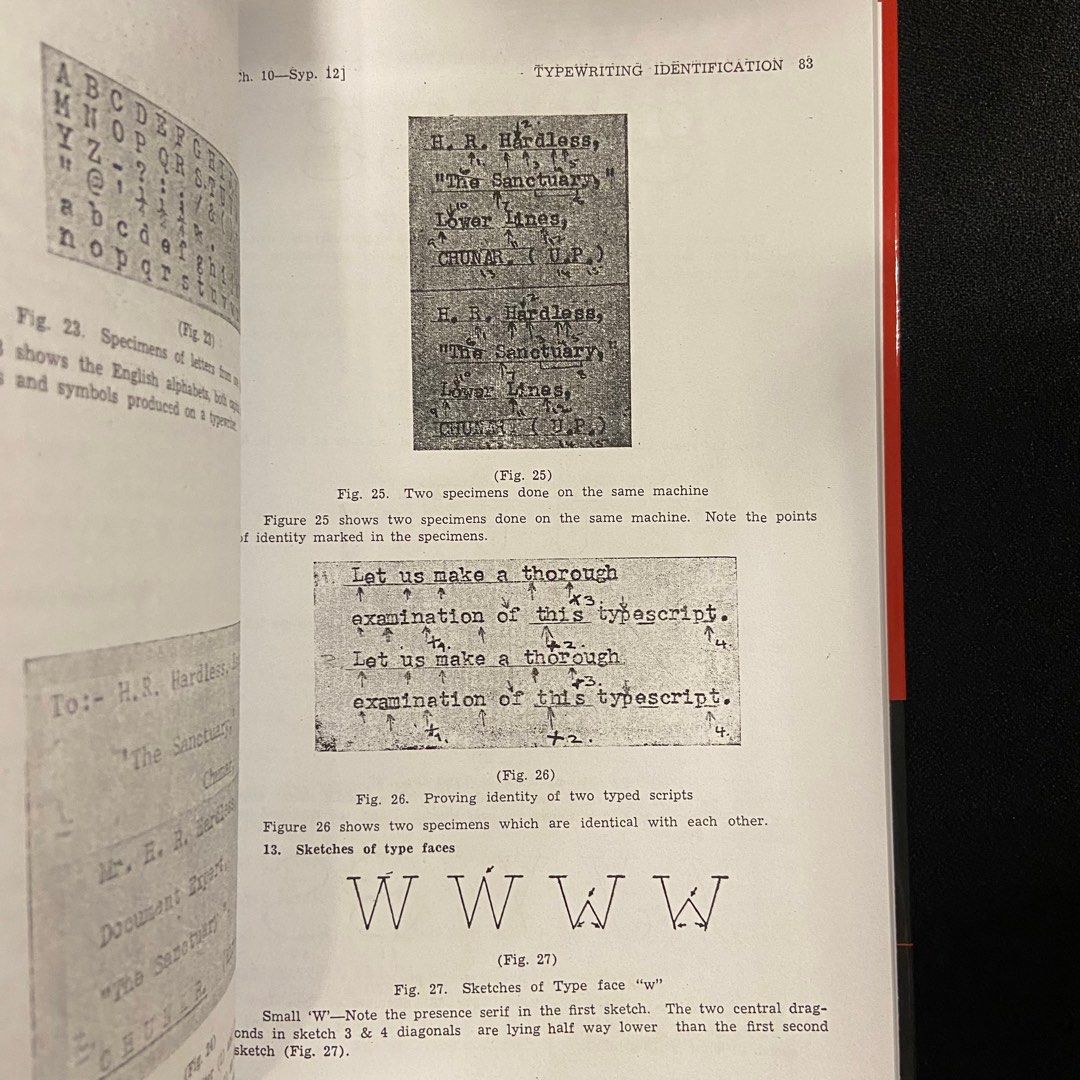 A B C D E F G H
M N O P Q R S T U
Y Z
" @
a b c d e f g h i
n o p q r s t u v
(Fig. 23)
Fig. 23. Specimens of letters from
shows the English alphabets, both
and symbols produced on a typewriter.
To:- H.R. Hardless,
"The Sanctuary,
Chunar
Mr. H. R. Hardless
Document Expert,
"The Sanctuary"
CHUNAR
Ch. 10—Syp. 12]
TYPEWRITING IDENTIFICATION 83
H. R. Hardless,
"The Sanctuary,"
Lower Lines,
CHUNAR. ( U.P.)
H. R. Hardless,
"The Sanctuary,"
Lower Lines,
CHUNAR. ( U.P.)
(Fig. 25)
Fig. 25. Two specimens done on the same machine
Figure 25 shows two specimens done on the same machine. Note the points
of identity marked in the specimens.
Let us make a thorough
x3.
examination of this typescript.
x1. x2. 4.
Let us make a thorough
x3.
examination of this typescript.
x1. x2. 4.
(Fig. 26)
Fig. 26. Proving identity of two typed scripts
Figure 26 shows two specimens which are identical with each other.
13. Sketches of type faces
W W W W
(Fig. 27)
Fig. 27. Sketches of Type face "w"
Small 'W'—Note the presence serif in the first sketch. The two central drag-
onds in sketch 3 & 4 diagonals are lying half way lower than the first second
sketch (Fig. 27).